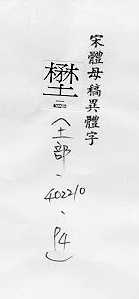 宋體母稿異體字
(土部、402210、P4)